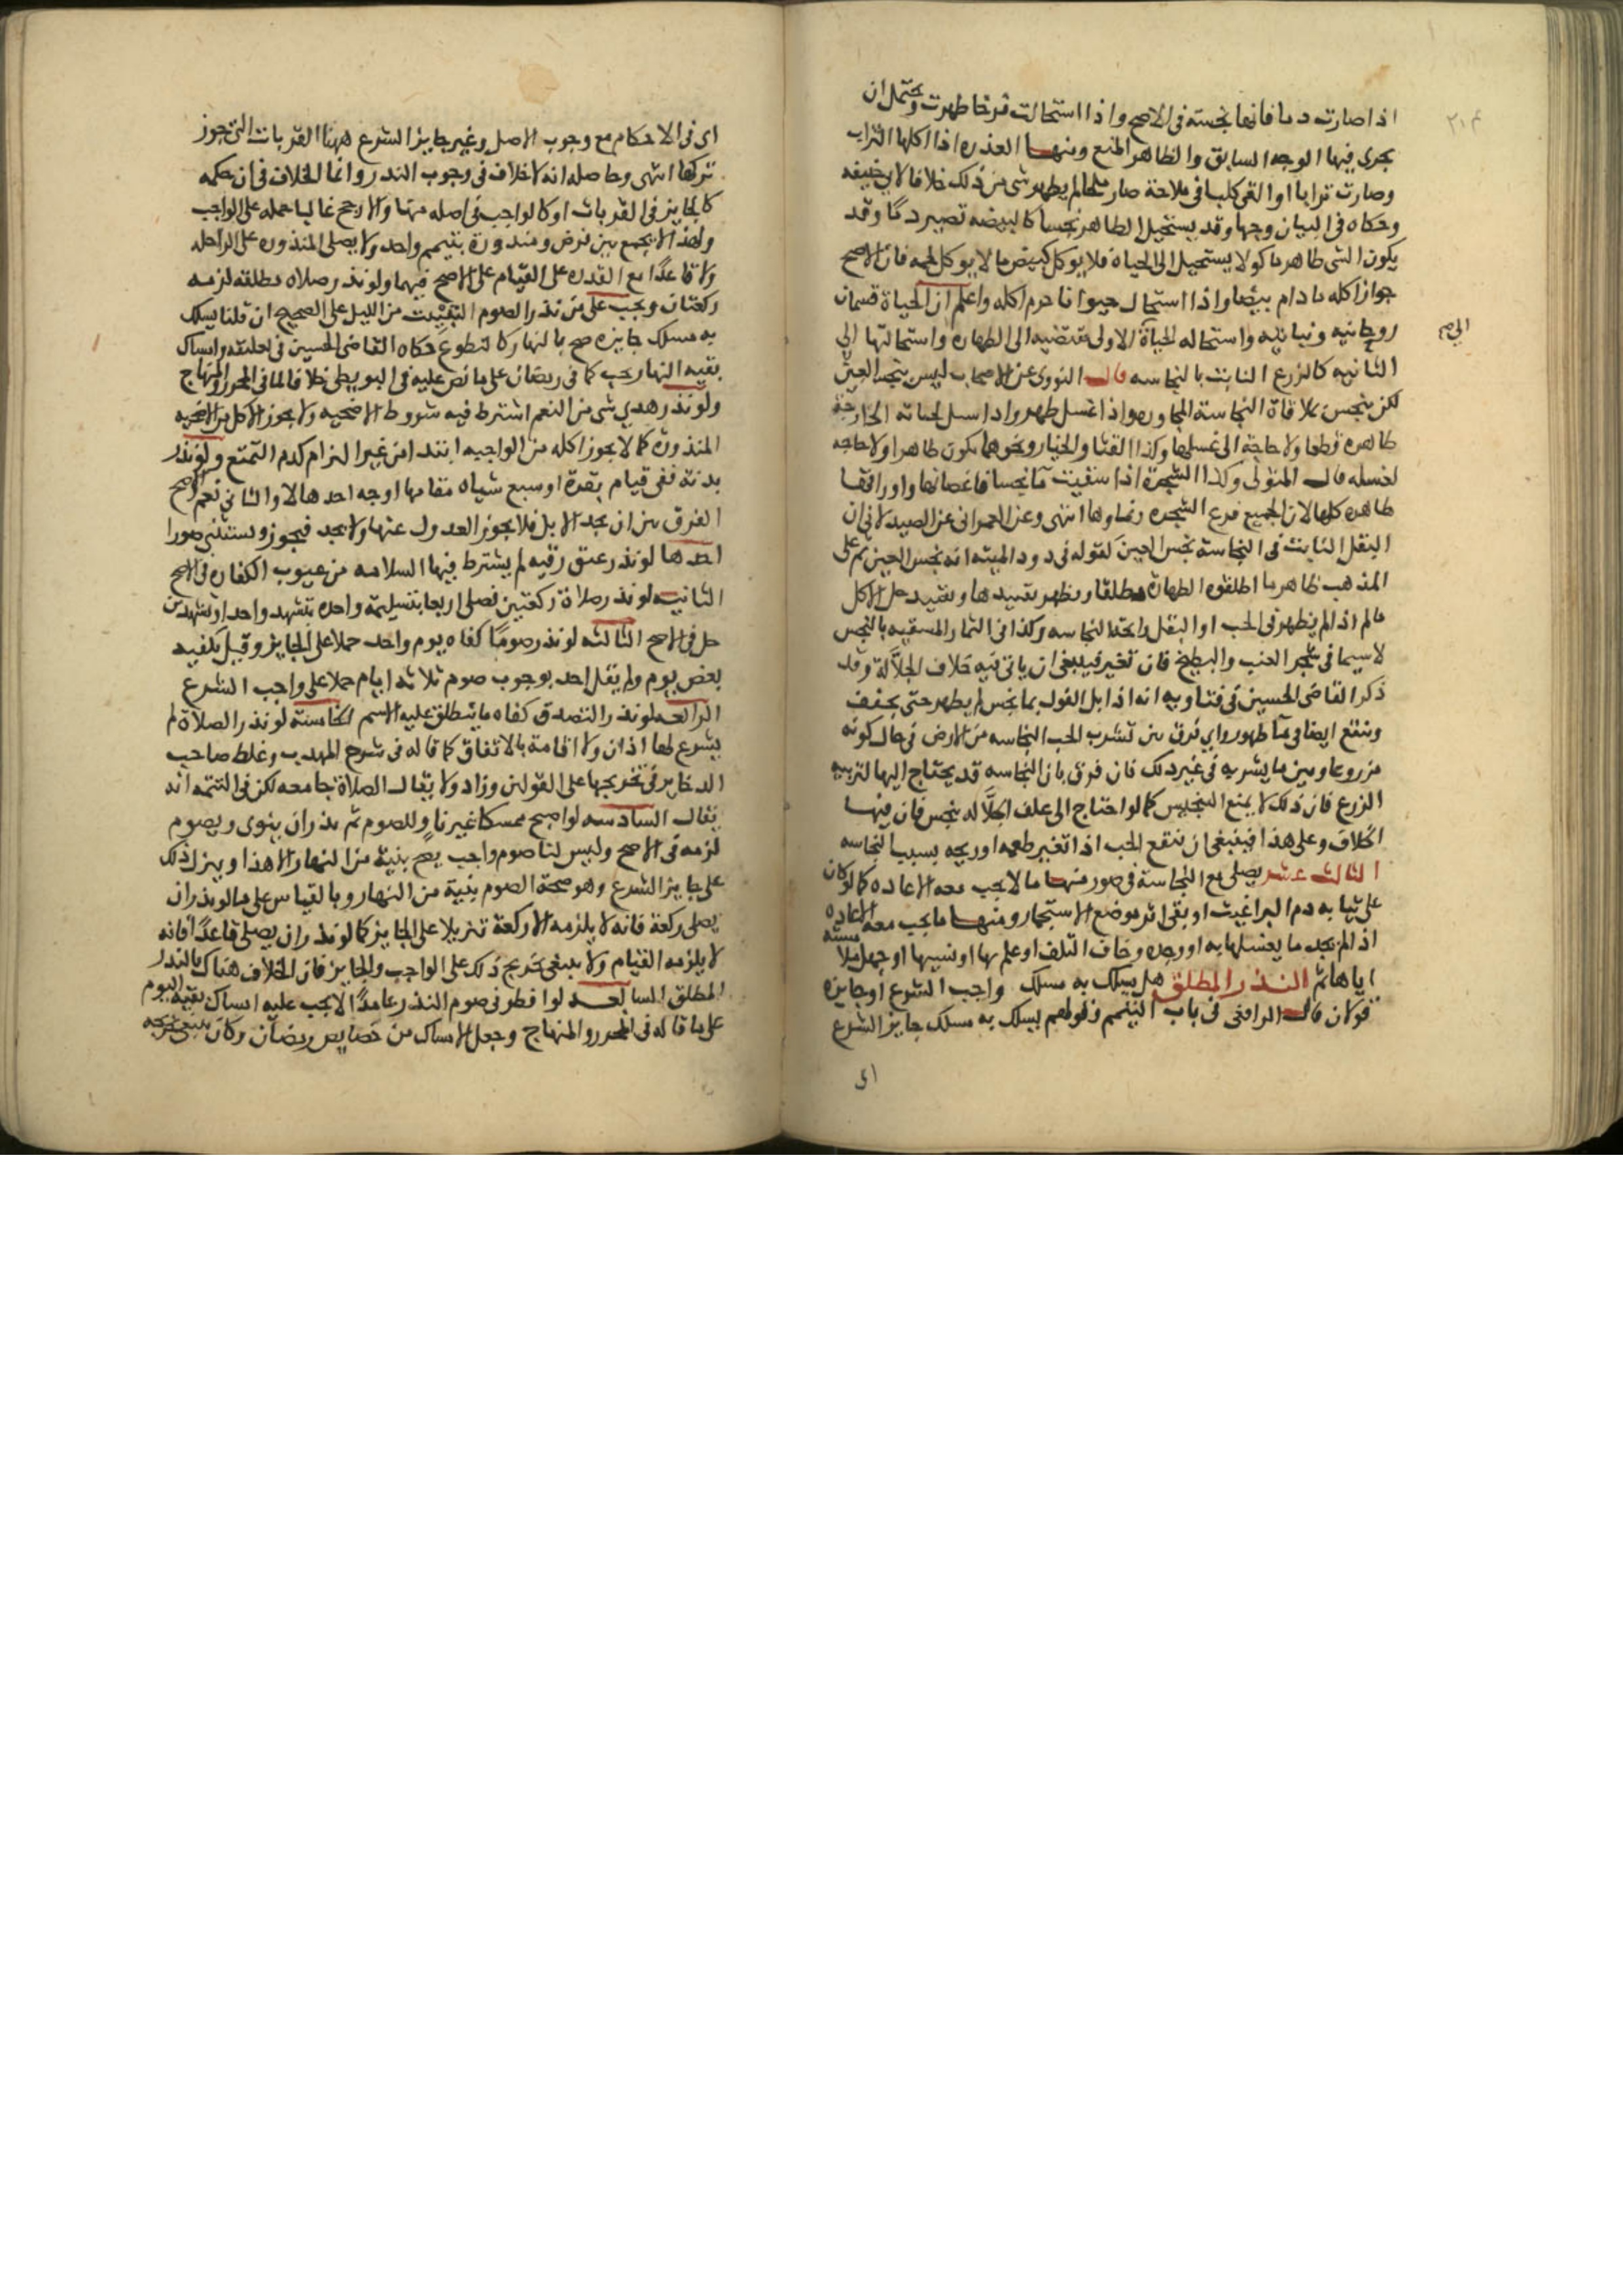 اذا صارت دما فانها نجسة في الاصح واذا استحالت فرخا طهرت ويحتمل ان
يجري فيها الوجه السابق والظاهر المنع ومنها العذره اذا اكلها التراب
وصارت ترابا او القي كلب في ملاحة صار ملحا لم يطهر شي من ذلك خلافا لابي حنيفه
وحكاه في البيان وجها وقد يستحيل الطاهر نجسا كالبيضه تصير دما وقد
يكون الشي طاهر ماكولا يستحيل الى الحياه فلا يوكل كبيض ما لا يوكل لحمه فان الاصح
جواز اكله ما دام بيضا واذا استحال حيوانا حرم اكله واعلم ان الحياة قسمان
روحانيه ونباتيه واستحاله الحياة الاولى مقتضيه الى الطهاره واستحالتها الى
الثانيه كالزرع النابت بالنجاسه قال النووي عن الاصحاب ليس بنجس العين
لكن ينجس بملاقاة النجاسة المجاوره واذا غسل طهر واذا سنبل فحباته الخارجة
طاهرة قطعا ولا حاجة الى غسلها وكذا القثا والخيار ونحوهما يكون طاهرا ولا حاجه
لغسله قال المتولي وكذا الشجرة اذا سقيت مآ نجسا فاغصانها واوراقها
طاهره كلها لان الجميع فرع الشجره ونماوها انتهى وعن العمراني عن الصيدلاني ان
البقل النابت في النجاسة نجس العين كقوله في دود الميته انه نجس العين ثم على
المذهب ظاهر ما اطلقوه الطهارة مطلقا ويظهر تقييدها وتقييد حل الاكل
مالم اذا لم يظهر في الحب او البقل رائحة النجاسه وكذا في الثمار المسقيه بالنجس
لا سيما في شجر العنب والبطيخ فان تغير فينبغي ان ياتي فيه خلاف الجلاله وقد
ذكر القاضي الحسين في فتاويه انه اذا بل الفول بما نجس لم يطهر حتى يجفف
وينقع ايضا في مآ طهور واي فرق بين تشرب الحب النجاسه من الارض في حال كونه
مزروعا وبين ما يشربه في غير ذلك فان فرق بان النجاسه قد يحتاج اليها لتربيه
الزرع فان ذلك لا يمنع التنجيس كما لو احتاج الى علف الجلاله بنجس فان فيها
الخلاف وعلى هذا فينبغي ان ينقع الحب اذا تغير طعمه او ريحه بسبب النجاسه
الثالث عشر يصلي مع النجاسة في صور منها ما لا يجب معه الاعاده كما لو كان
على ثيابه دم البراغيث او بقي اثر موضع الاستجمار ومنها ما يجب معه الاعاده
اذا لم يجد ما يغسلها به او وجده وخاف التلف او علم بها او نسيها او جهل
اياها ثم النذر المطلق هل يسلك به مسلك واجب الشرع او جايزه
قولان قال الرافعي في باب التيمم وقولهم يسلك به مسلك جايز الشرع
اى
اى في الاحكام مع وجوب الاصل وغير جايز الشرع ههنا القربات التي يجوز
تركها انتهى وحاصله انه لا خلاف في وجوب النذر وانما الخلاف في ان حكمه
كالجايز في القربات او كالواجب في اصله منها والارجح غالبا حمله على الواجب
ولهذا لا يجمع بين فرض ومنذورة بتيمم واحد ولا يصلي المنذوره على الراحله
ولا قاعدًا مع القدره على القيام على الاصح فيهما ولو نذر صلاه مطلقه لزمه
ركعتان ويجب على من نذر الصوم التبييت من الليل على الصحيح ان قلنا يسلك
به مسلك جايزه صح بالنهار كالتطوع حكاه القاضي الحسين في تعليقه وامساك
بقيه النهار يجب كما في رمضان على ما نص عليه في البويطي خلافا لما في المحرر والمنهاج
ولو نذر هدي شي من النعم اشترط فيه شروط الاضحيه ولا يجوز الاكل من الاضحيه
المنذورة كما لا يجوز اكله من الواجبه ابتدا من غير التزام كدم التمتع ولو نذر
بدنة ففي قيام بقرة او سبع شياه مقامها اوجه احدها لا والثاني نعم والاصح
الفرق بين ان يجد الابل فلا يجوز العدول عنها ولا يجد فيجوز ونستثني صورا
احدها لو نذر عتق رقبه لم يشترط فيها السلامه من عيوب الكفاره في الاصح
الثانيه لو نذر صلاة ركعتين فصلى اربعا بتسليمة واحده بتشهد واحد او تشهدين
حل في الاصح الثالثه لو نذر صومًا كفاه يوم واحد حملا على الجايز وقيل يكفيه
بعض يوم ولم يقل احد بوجوب صوم ثلاثه ايام حملا على واجب الشرع
الرابعه لو نذر التصدق كفاه ما ينطلق عليه الاسم الخامسة لو نذر الصلاة لم
يشرع لها اذان ولا اقامة بالاتفاق كما قاله في شرح المهذب وغلط صاحب
الذخاير في تخريجها على القولين وزاد ولا يقال الصلاة جامعه لكن في التتمه انه
يقال السادسه لو اصبح ممسكا غير ناوٍ للصوم ثم نذر ان ينوي ويصوم
لزمه في الاصح وليس لنا صوم واجب يصح بنية من النهار الا هذا وينزل ذلك
على جايز الشرع وهو صحة الصوم بنية من النهار وبالقياس على ما لو نذر ان
يصلي ركعة فانه لا يلزمه الا ركعة تنزيلا على الجايز كما لو نذر ان يصلي قاعدًا فانه
لا يلزمه القيام ولا ينبغي تخريج ذلك على الواجب والجايز فان الخلاف هناك كالنذر
المطلق السابعه لو افطر في صوم النذر عامدًا لا يجب عليه امساك بقيه اليوم
على ما قاله في المحرر والمنهاج وجعل الامساك من خصايص رمضان وكان ينبغي تخريجه